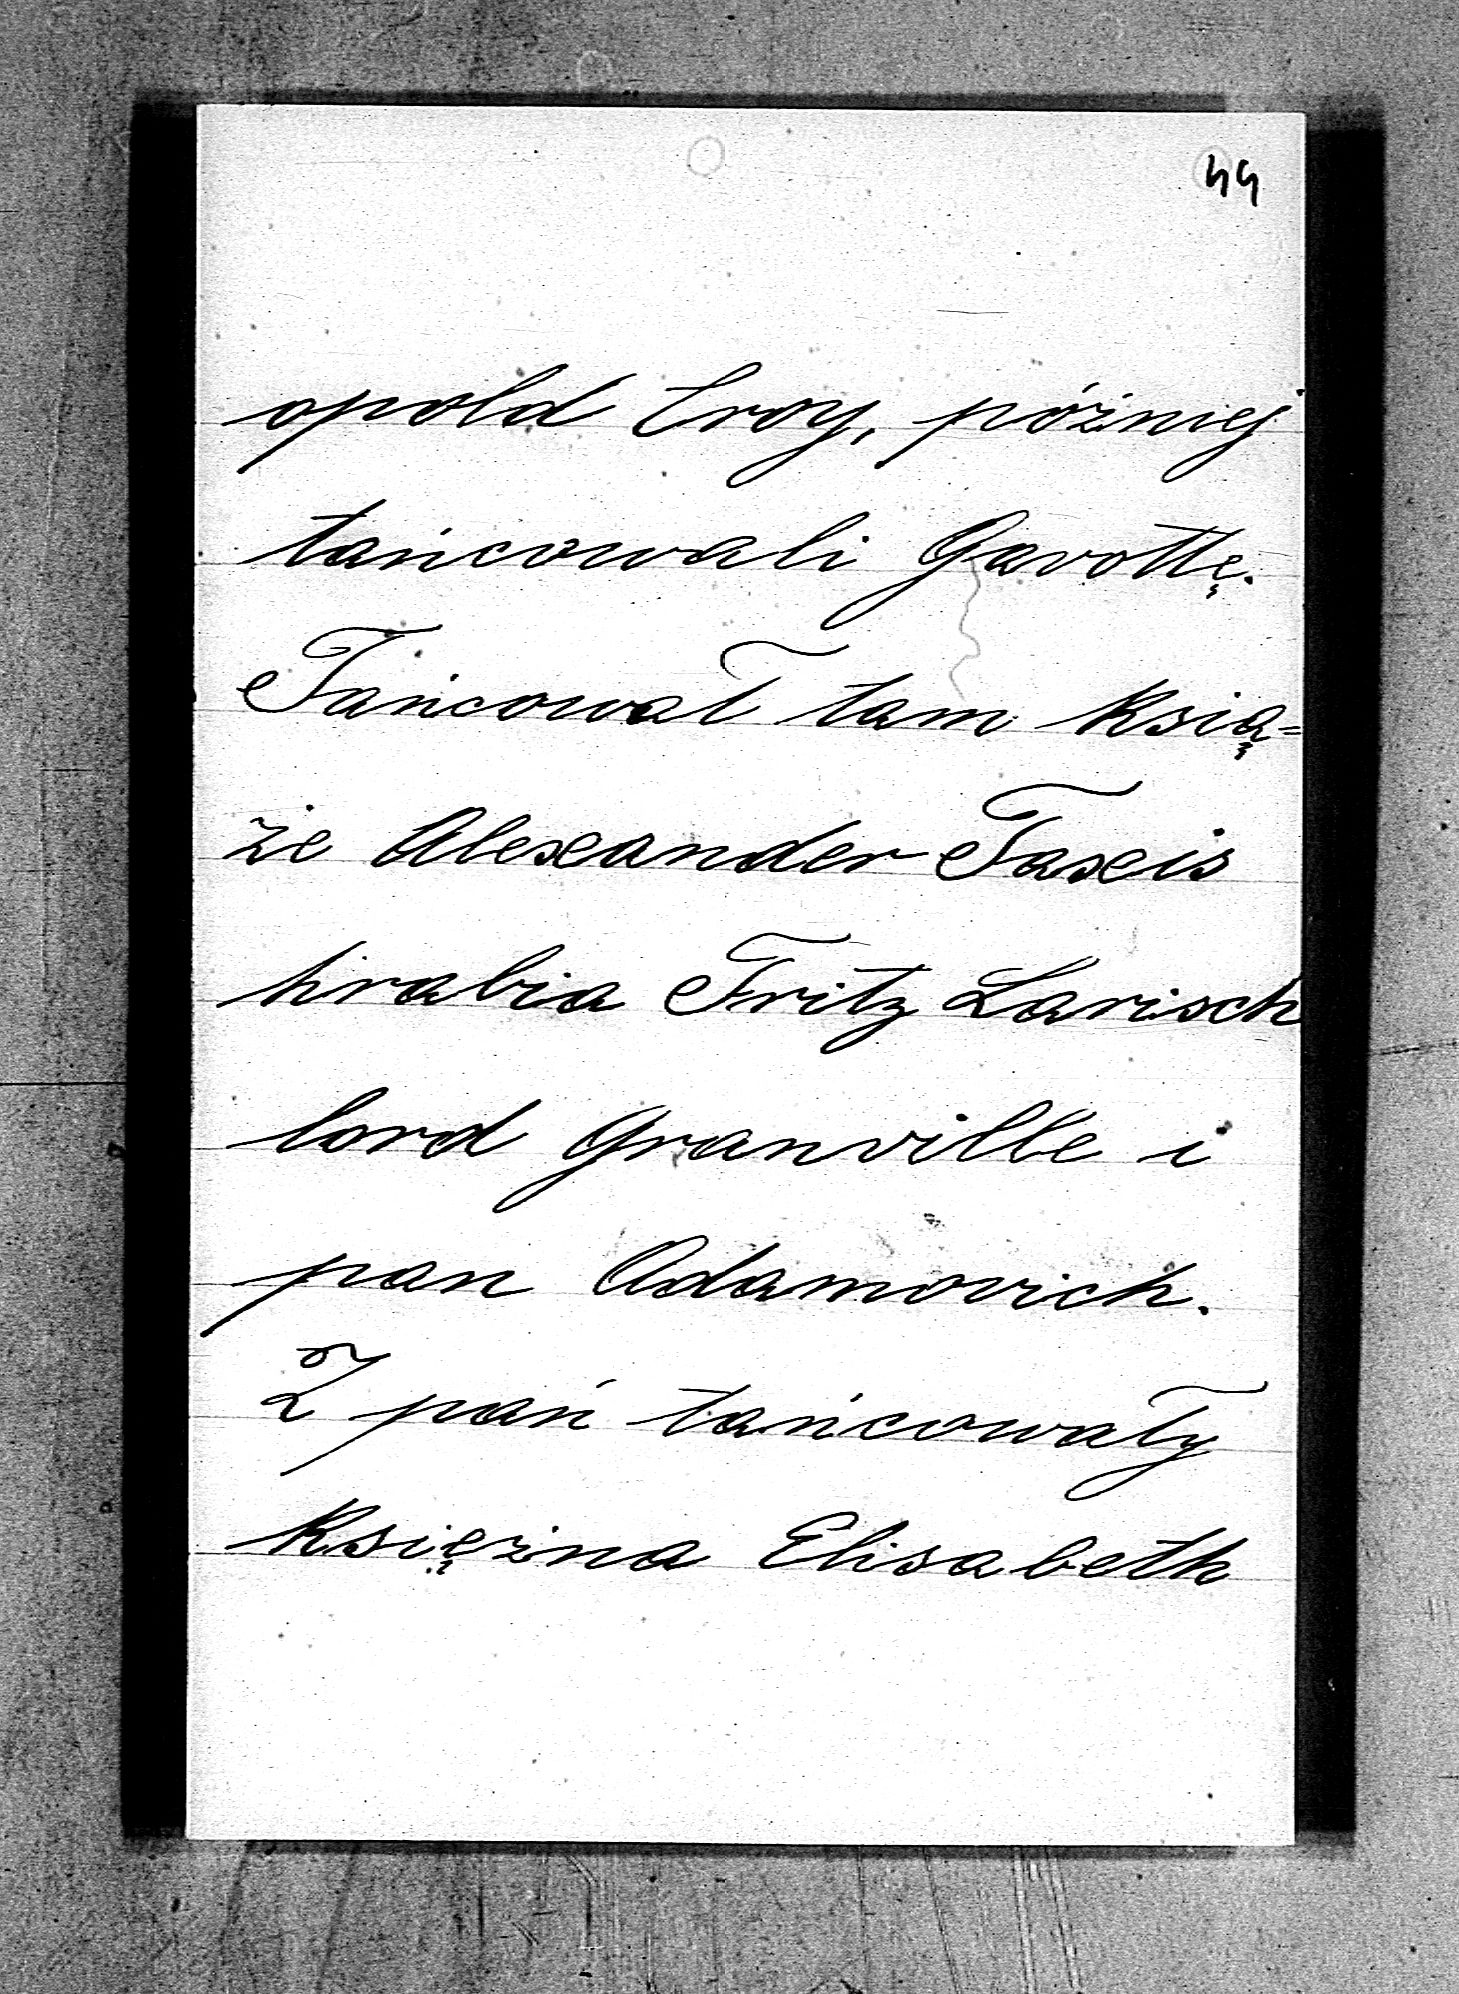 44
opold Croy, później
tańcowali Gavottę.
Tańcował tam ksią=
że Alexander Taxis
hrabia Fritz Larisch
lord Granville i
pan Adamovich.
Z pań tańcowały
księżna Elisabeth